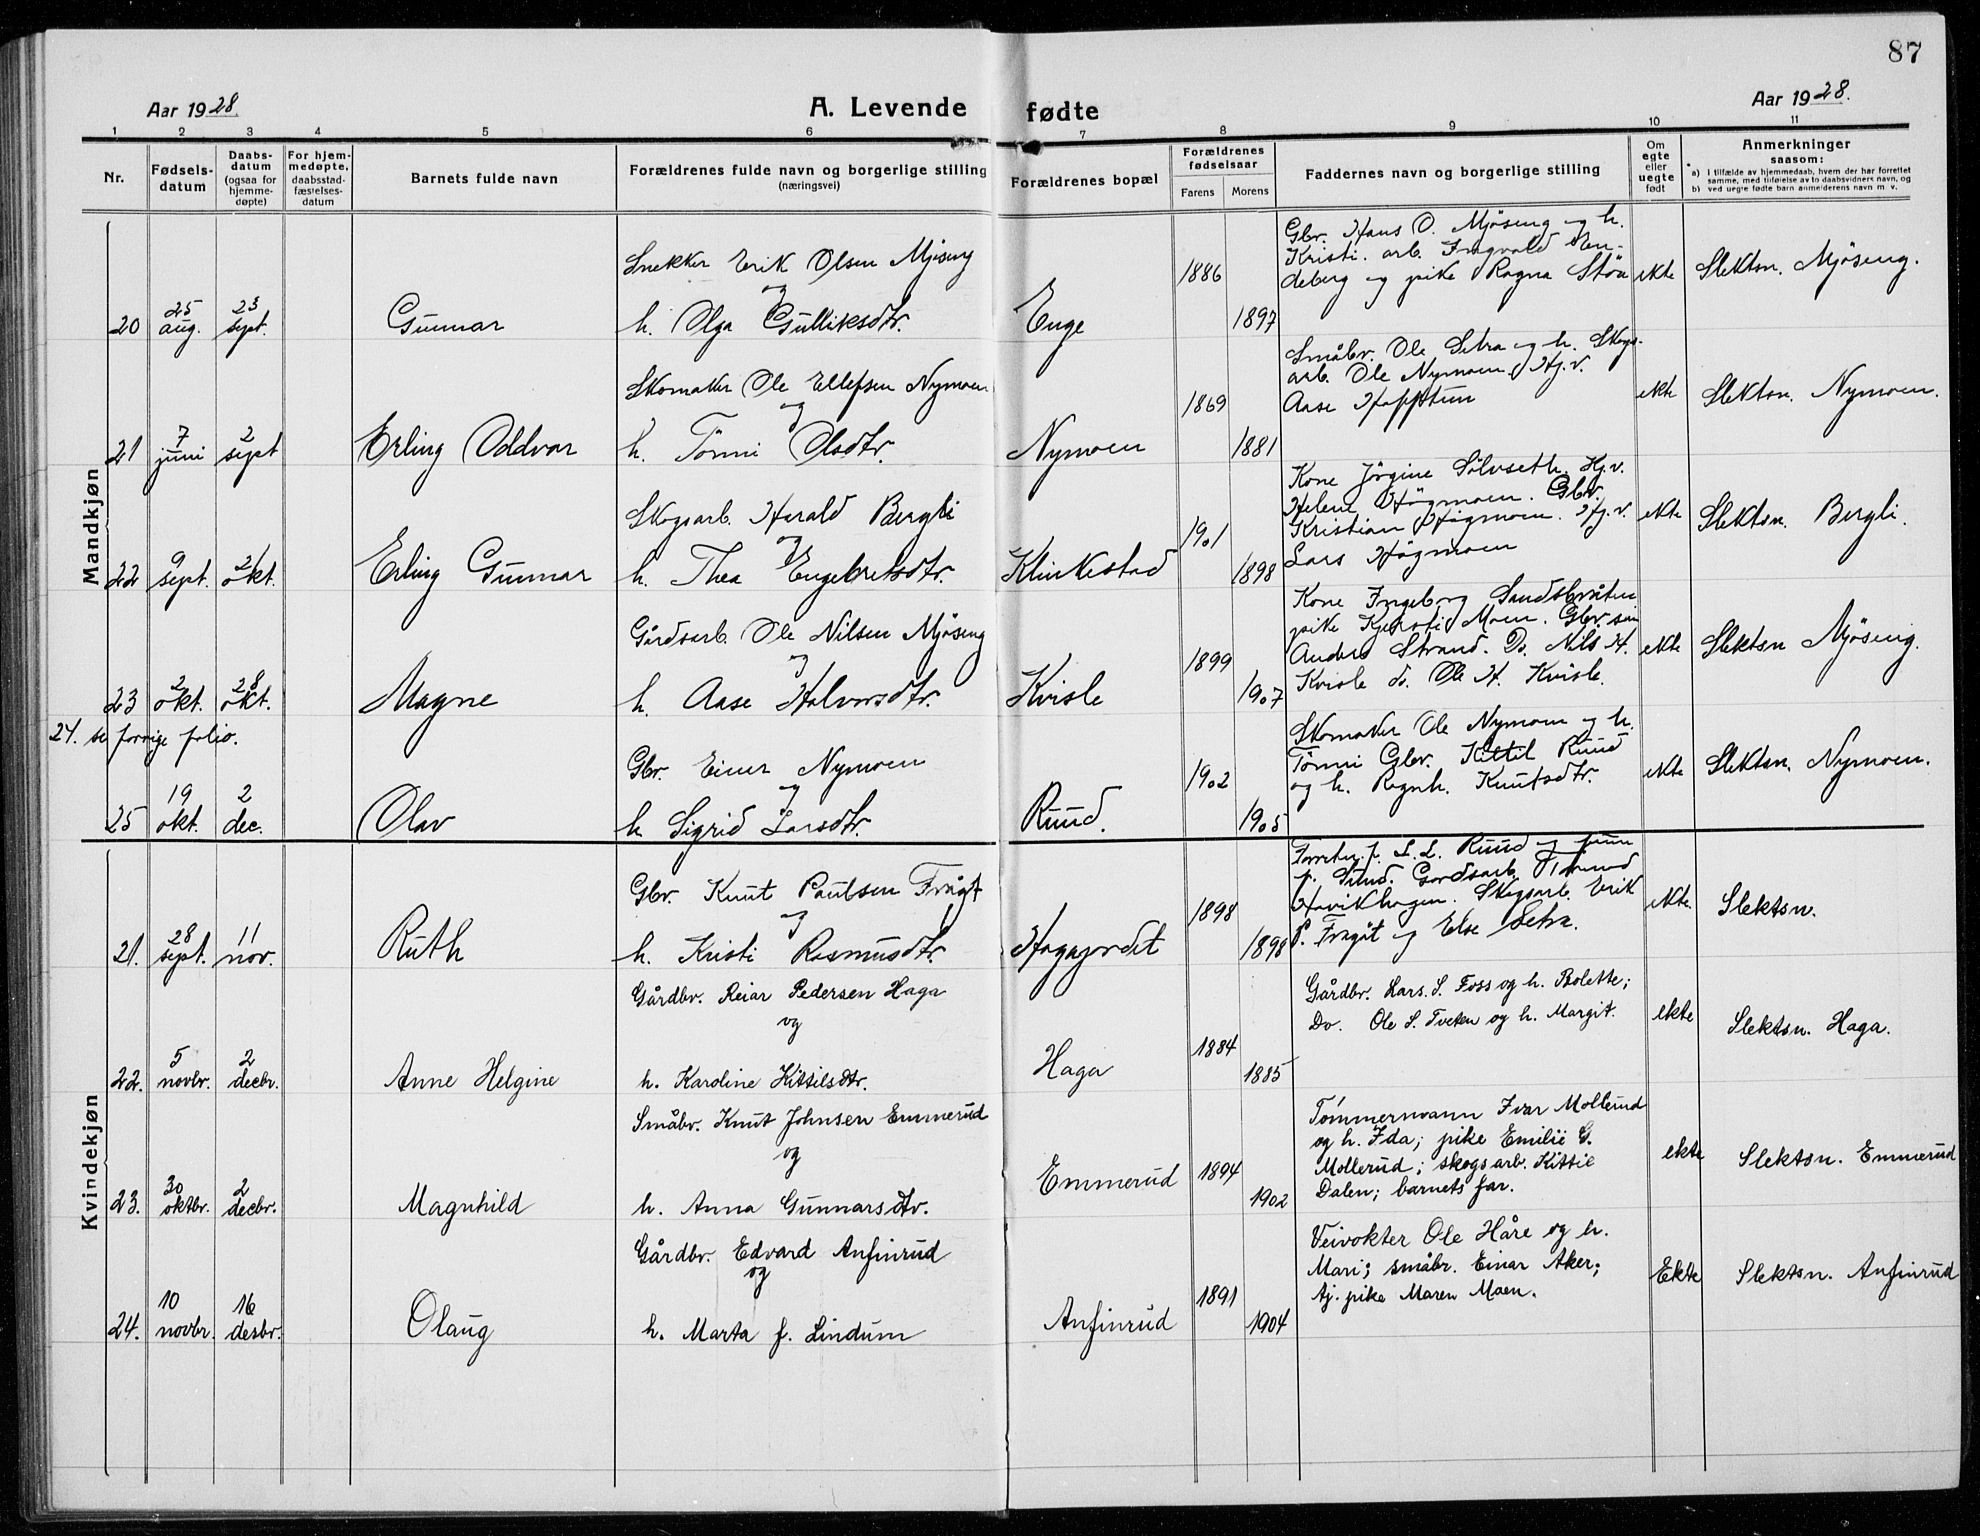 87
Aar 1928.
A. Levende fødte
Aar 1928.
1 2 3 4 5 6 7 8 9 10 11
Nr.
Fødsels-
datum
Daabs-
datum
(ogsaa for
hjemme-
døpte)
For hjem-
medøpte,
daabsstad-
fæstelses-
datum
Barnets fulde navn
Forældrenes fulde navn og borgerlige stilling
(næringsvei)
Forældrenes bopæl
Forældrenes
fødselsaar
Farens Morens
Faddernes navn og borgerlige stilling
Om
egte
eller
uegte
født
Anmerkninger
saasom:
a) I tilfælde av hjemmedaab, hvem der har forrettet
samme, med tilføielse av to daabsvidners navn, og
b) ved uegte fødte barn anmelderens navn m. v.
Mandkjøn
20
25
aug.
23
sept.
Gunnar
Snekker Erik Olsen Mjøseng
og
h. Olga Gulliksdtr.
Enge
1886
1897
Gbr. Hans O. Mjøseng og h.
Kristi. arb. Ingvald
deberg og pike Ragna Støa
ekte
Slektsn. Mjøseng.
21
7
juni
2
sept
Erling Oddvar
Skomaker Ole Ellefsen Nymoen
og
h. Tönni Olsdtr.
Nymoen
1869
1881
Småbr. Ole Setra og h. Skogs-
arb. Ole Nymoen. Hj.v.
Aase
ekte
Slektsn. Nymoen.
22
9
sept.
21
okt.
Erling Gunnar
Skogsarb. Harald Bergli
og
h. Thea Engebretsdtr.
Klinkestad
1901
1898
Kone Jörgine Sölvseth. Hj.v.
Helene Högmoen. Gbr.
Kristian Högmoen. Hj.v.
Lars Högmoen
ekte
Slektsn. Bergli.
23
2
okt.
28
okt.
Magne
Gårdsarb. Ole Nilsen Mjøseng
og
h. Aase Halvorsdtr.
Kvisle
1899
1907
Kone Ingeborg Sandsbråten
pike Kjersti Moen. Gbr.søn
Anders Strand. Do. Nils H.
Kvisle do. Ole H. Kvisle.
ekte
Slektsn Mjøseng.
24. se forrige folio.
25
19
okt.
2
dec.
Olav
Gbr. Einer Nymoen
og
h Sigrid Larsdtr.
Ruud.
1902
1905
Skomaker Ole Nymoen og h.
Tönni Gbr. Kittil Ruud
og h. Ragnh. Knutsdtr.
ekte
Slektsn. Nymoen.
Kvindekjøn
21.
28
sept.
11
nov.
Ruth
Gbr. Knut Paulsen Frågåt
og
h. Kristi Rasmusdtr.
Hagajordet
1898
1898
L. L. Ruud og
Gardsarb.
Skogsarb. Erik
P. Frågåt og Else Setra.
ekte.
Slektsn.
22.
5
novbr.
2
decbr.
Anne Helgine
Gårdbr. Reiar Pedersen Haga
og
h. Karoline Kittilsdtr.
Haga
1884
1885
Gårdbr. Lars. S. Foss og h. Bolette;
Do. Ole S. Tveten og h. Margit.
ekte
Slektsn. Haga.
23.
30
oktbr.
2
decbr.
Magnhild
Småbr. Knut Johnsen Emmerud
og
h. Anna Gunnarsdtr.
Emmerud
1894
1902
Tömmermann Ivar Mollerud
og h. Ida; pike Emilie G.
Mollerud; skogsarb. Kittil
Dalen; barnets far.
ekte
Slektsn. Emmerud
24.
10
novbr.
16
desbr.
Olaug
Gårdbr. Edvard Anfinrud
og
h. Marta f. Lindum
Anfinrud
1891
1904
Veivokter Ole Håre og h.
Mari; småbr. Einar Aker;
Aj. pike Maren Moen.
Ekte
Slektsn. Anfinrud